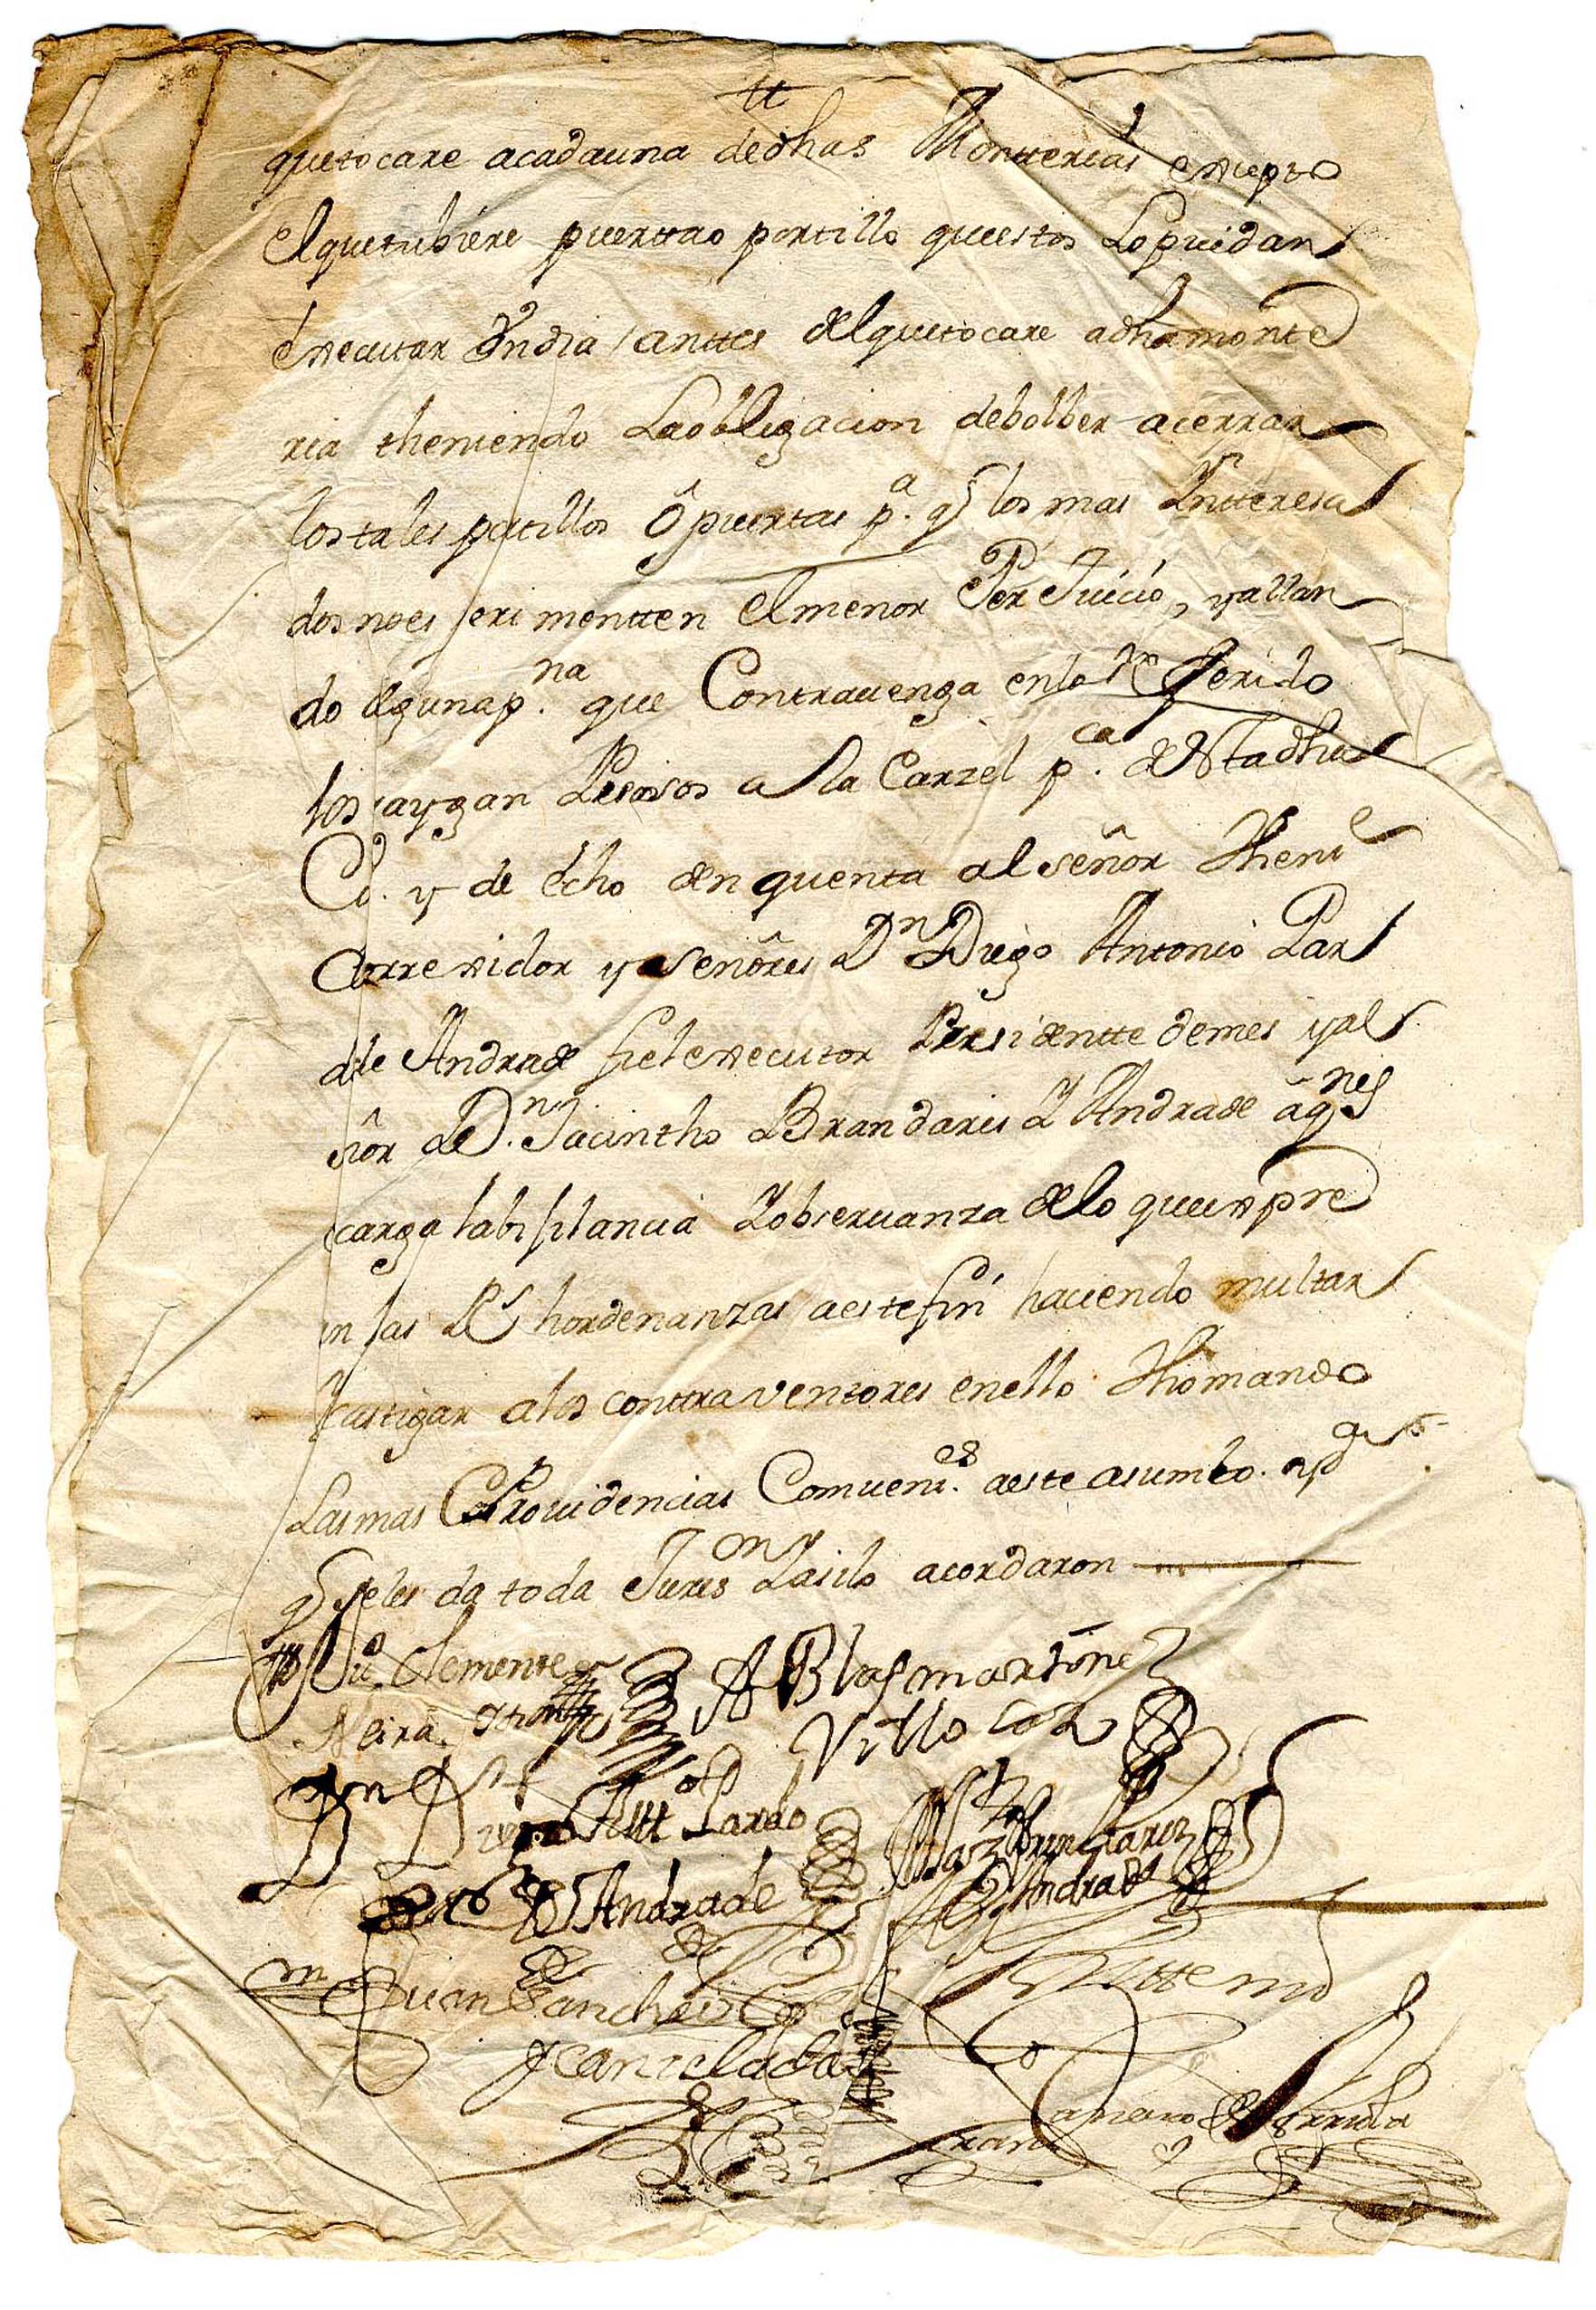 tt
quetocare acadauna dedhas Montterias excepto
elquetubiere puerttao portillo questos Lopuedan
executar Undia anttes delquetocare adhamontte
ria theniendo Laobligacion debolber acerrar
lostales potillos ô puertas pª. q̃ los mas Intteresa
dosnoes perimentten elmenor PerJuicio, yallan
do algunap.na que Contrauenga enlo Referido
los aygan Presos a la Carzel p.ca destadha
Cd. y de echo den quenta al señor Thente
Correxidor y señores Dn Diego Antonio Par
de Andrade fielexecutor Presidentte demes yal
ñor D.n Jacintho Brandaris Y Andrade âqnes
carga labixilancia Yobseruanza delo queexpre
n las Rs hordenanzas aestefin haciendo multar
castigar alos contraventores enello Thomando
Lasmas Prouidencias Comueni.es aeste asumto. p
q̃ seles da toda Jureson Yasilo acordaron
Clemente
Neira
A Blas martinez
Villo
Dn Diego Antt Pardo
de Andrade
Andrade
Juan Sanchez
Y Canzelada
Antte mi